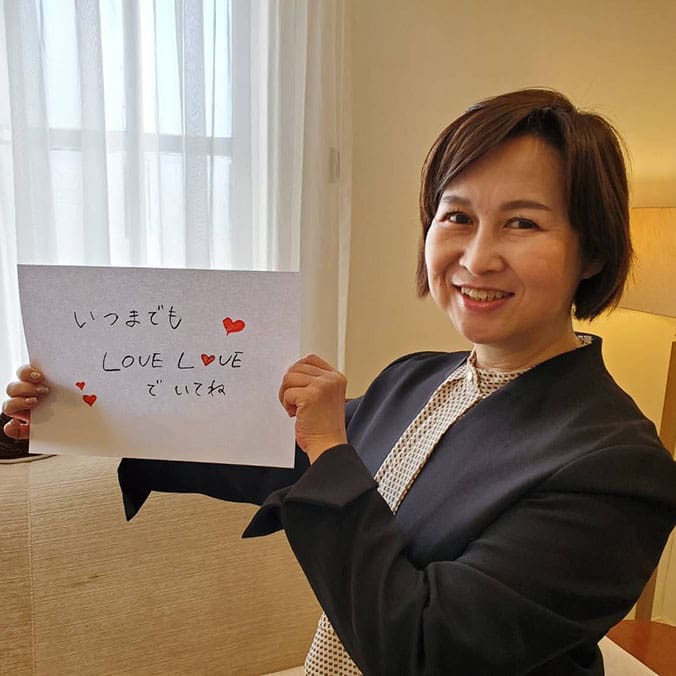 いつまでも
LOVE LOVE
でいてね